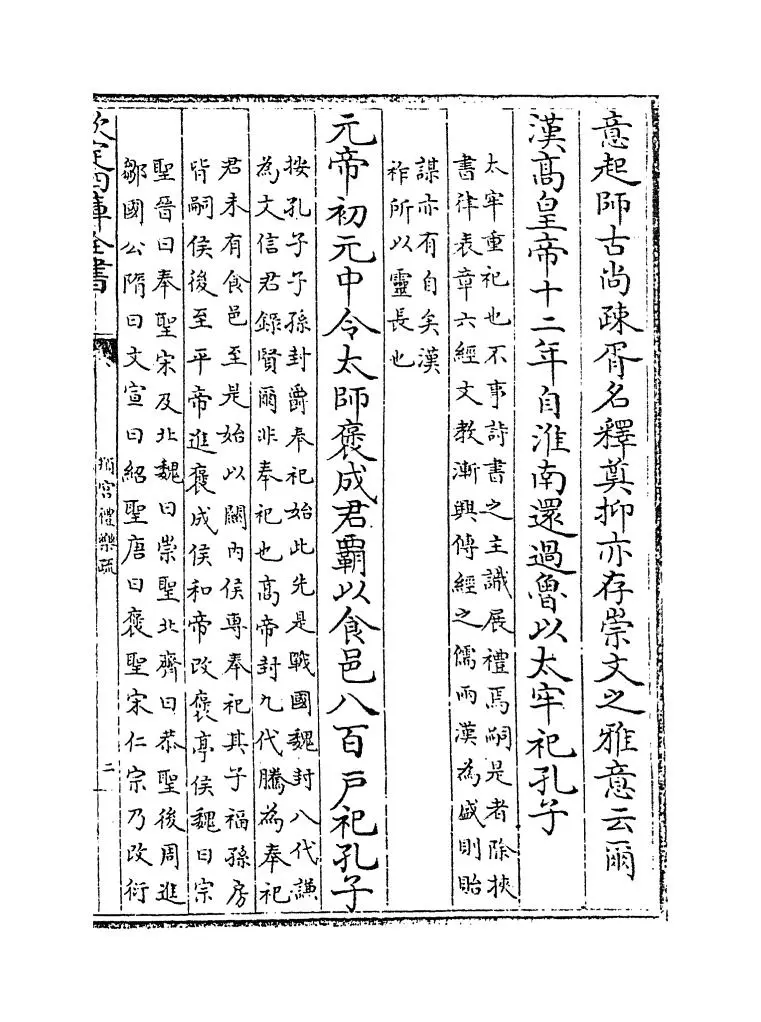 意起師古尚疎胥名釋奠抑亦存崇文之雅意云爾
漢髙皇帝十二年自淮南還過魯以太牢祀孔子
太牢重祀也不事詩書之主識展禮焉嗣是者除挾
書律表章六經文教漸興傳經之儒兩漢為盛則貽
謀亦有自矣漢
祚所以靈長也
元帝初元中令太師褒成君霸以食邑八百戸祀孔子
按孔子子孫封爵奉祀始此先是戰國魏封八代謙
為文信君錄賢爾非奉祀也髙帝封九代騰為奉祀
君未有食邑至是始以關内侯專奉祀其子福孫房
皆嗣侯後至平帝進褒成侯和帝改褒亭侯魏曰宗
聖晉曰奉聖宋及北魏曰崇聖北齊曰恭聖後周進
鄒國公隋曰文宣曰紹聖唐曰褒聖宋仁宗乃改衍
欽定四庫全書
頖宮禮樂疏
二